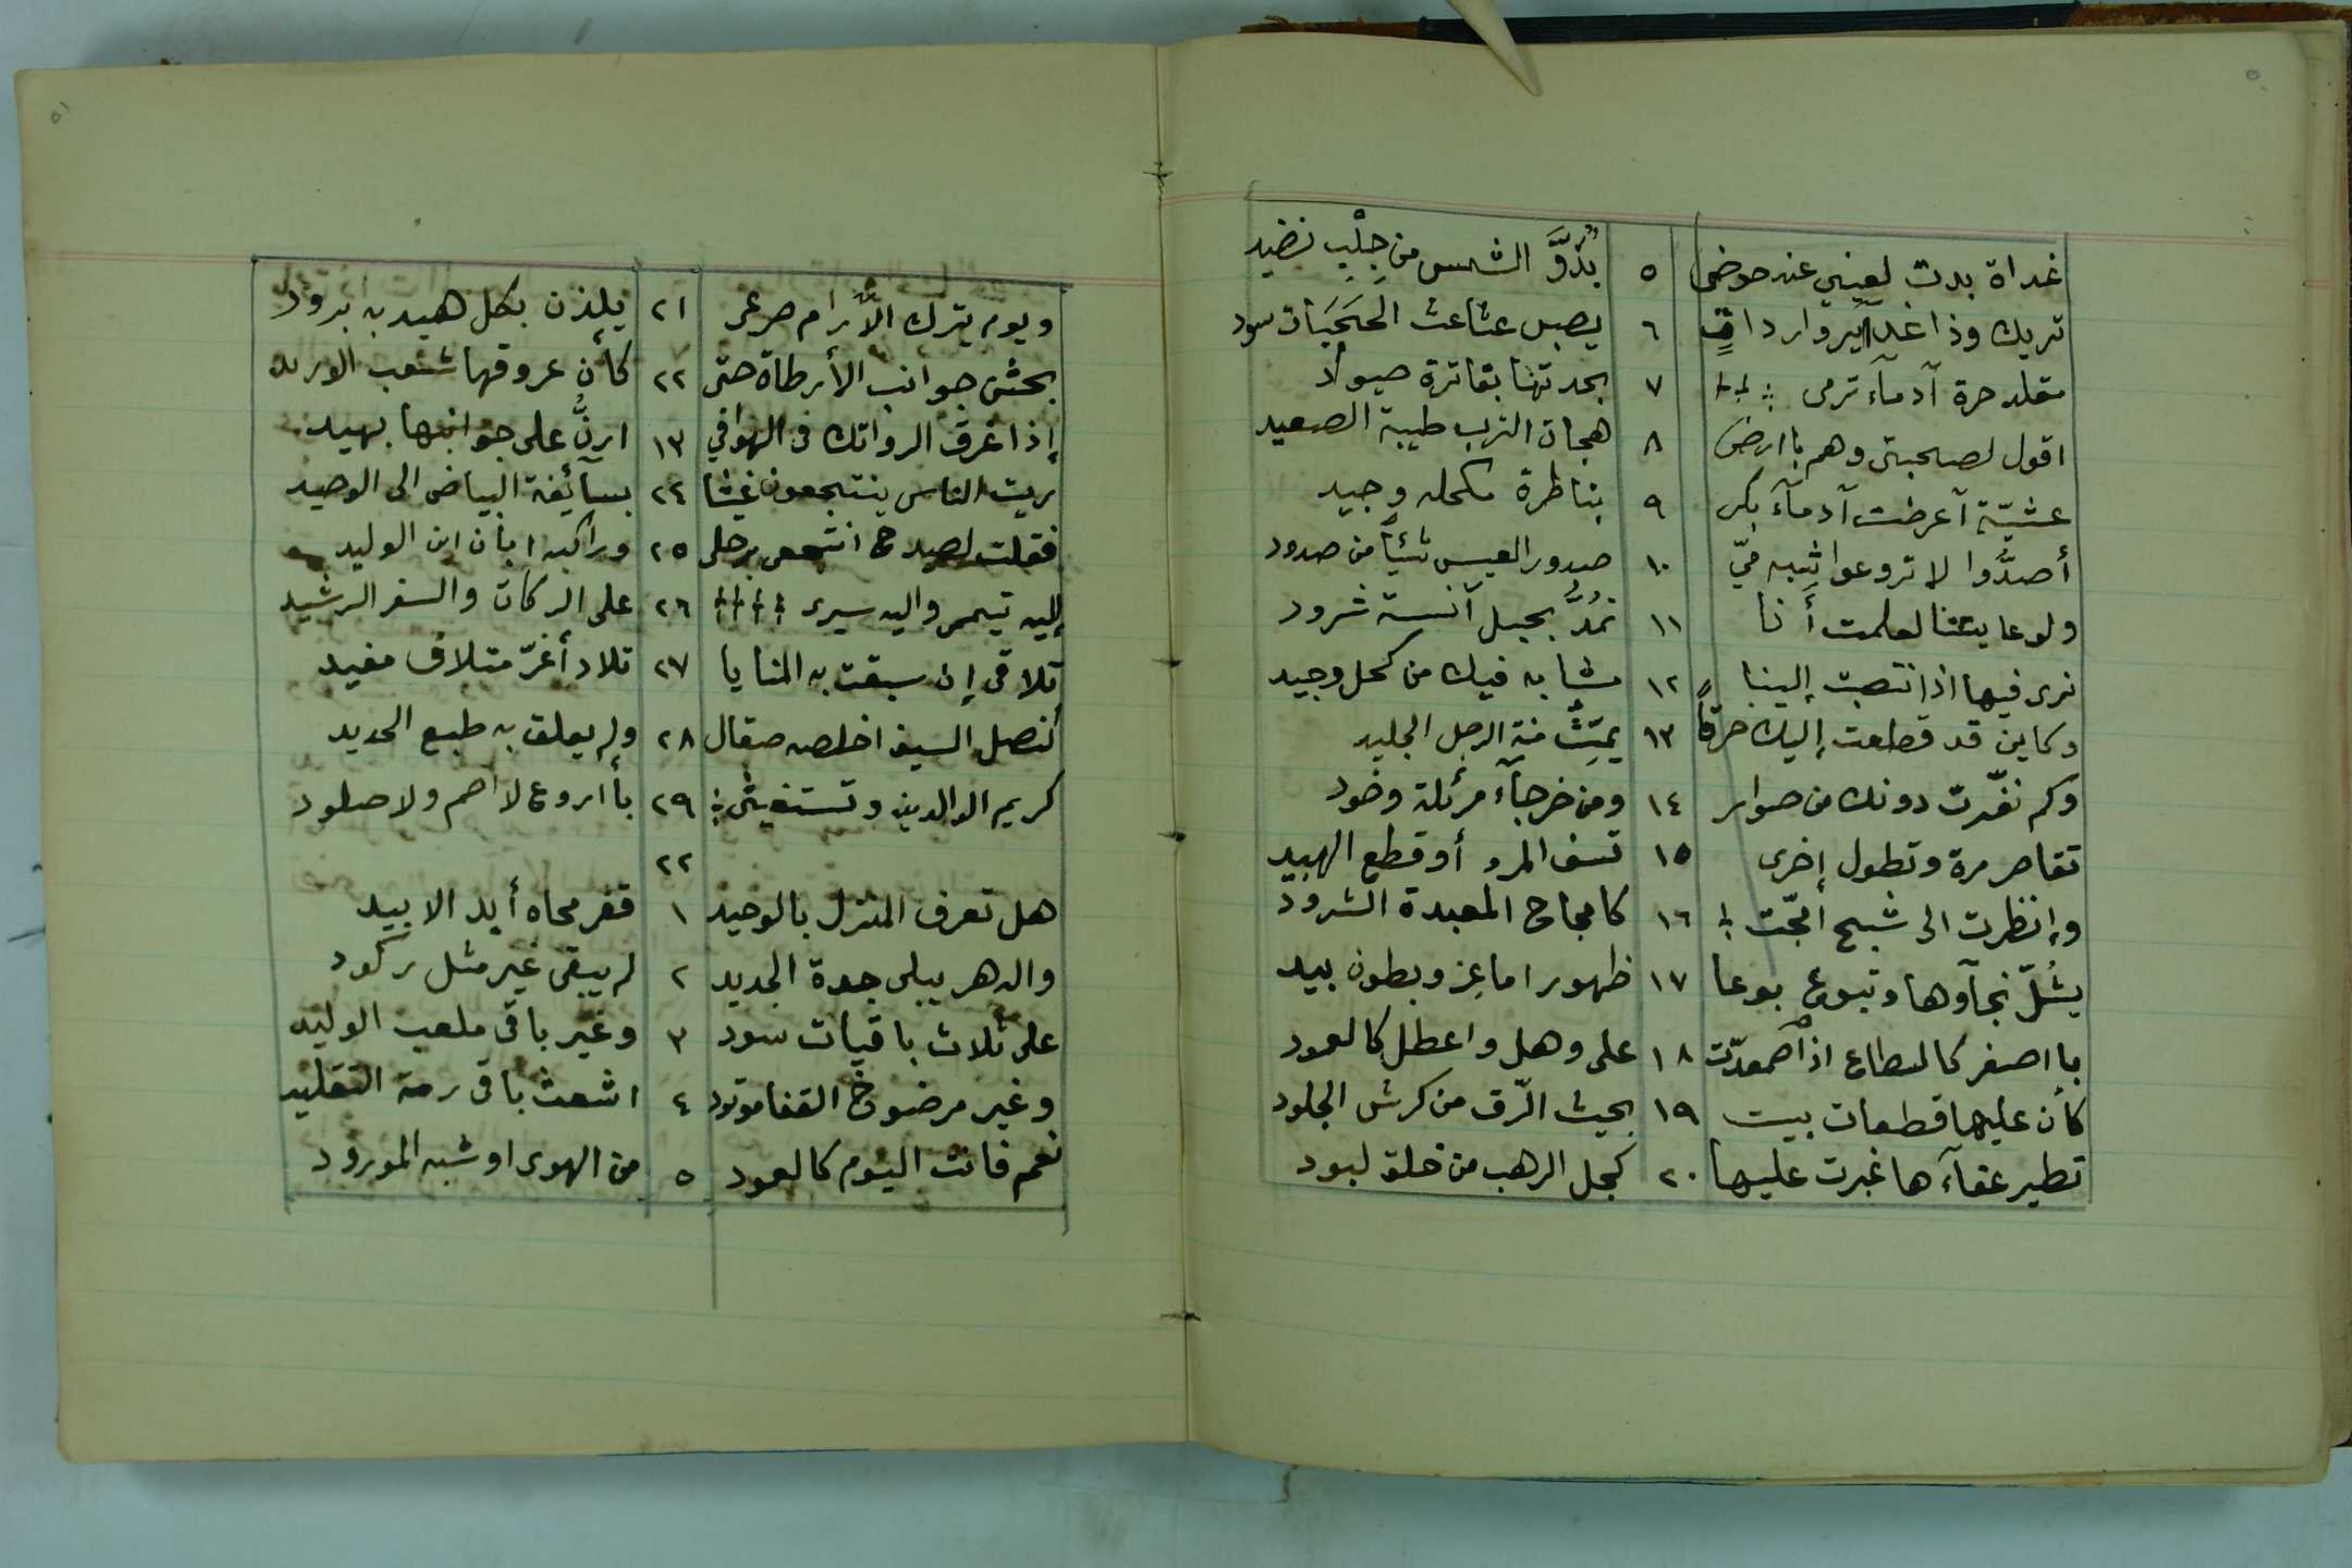 غداة بدت لعيني عند حوضى ٥ بُدُوَّ الشمس من جِلْبٍ نضيد
تريك وذا غدآئر واردات ٦ يصبن عثاعث الحَجَبَات سود
مقلد حرة آدمآء ترمى ٧ بحدتها بقاترة صيود
اقول لصحبتى وهم بارض ٨ هجان الترب طيبة الصعيد
عشيّة آعرضت آدمآء بكر ٩ بناظرة مكحله وجيد
أصدُّوا لا تروعوا شبه ميّ ١٠ صدور العيس شيئاً من صدود
ولو عاينتنا لعلمت أَنا ١١ نمُدُّ بحبل آنسة شرود
نرى فيها اذا انتصبت إلينا ١٢ مشابه فيك من كحل وجيد
وكاين قد قطعت إليك خرقاً ١٣ يميّت منة الرجل الجليد
وكم نفّرت دونك من صوار ١٤ ومن خرجآء مرئلة وخود
تقاصر مرة وتطول إخرى ١٥ تسف المرو أو قطع الهبيد
وإنظرت الى شبح أمجّت ١٦ كامجاج المعبدة الشرود
يشُلّ نجآوها وتبوع بوعا ١٧ ظهور اماعز وبطون بيد
با اصفر كالسطاع اذا اصمعدّت ١٨ على وهل واعطل كالعمود
كأن عليها قطعات بيت ١٩ بحيث الزّق من كرش الجلود
تطير عفآءها غبرت عليها ٢٠ كجل الرهب من خلق لبود
٥١
ويوم يترك الآرام صرعى ٢١ يلذن بكل هيدبه برود
بحثن جوانب الأرطاة حتى ٢٢ كأن عروقها شعب الوريد
إذا غرق الرواتك فى الهوافي ١٣ ارنَّ على جوانبها بهيد
ريت الناس ينتجعون غيثا ٢٤ بسآئفة البياض الى الوحيد
فقلت لصيدح انتجعى برحلى ٢٥ وراكبه ابان ابن الوليد
إليه تيممى واليه سيرى ٢٦ على الركات والسفر الرشيد
تلاقى إن سبقت به المنايا ٢٧ تلاد أغرّ متلاف مفيد
كنصل السيف اخلصه صقال ٢٨ ولم يعلق به طبع الحديد
كريم الوالدين وتستغيثى ٢٩ بأاروع لا اصم ولا صلود
٢٢
هل تعرف المنزل بالوحيد ١ قفر محاه أبد الابيد
والدهر يبلى جدة الجديد ٢ لم يبقى غير مثل ركود
على ثلاث باقيات سود ٣ وغير باقى ملعب الوليد
وغير مرضوخ القفا موتود ٤ اشعث باقى رمة التقليد
نعم فانت اليوم كالعمود ٥ من الهوى او شبه المورود